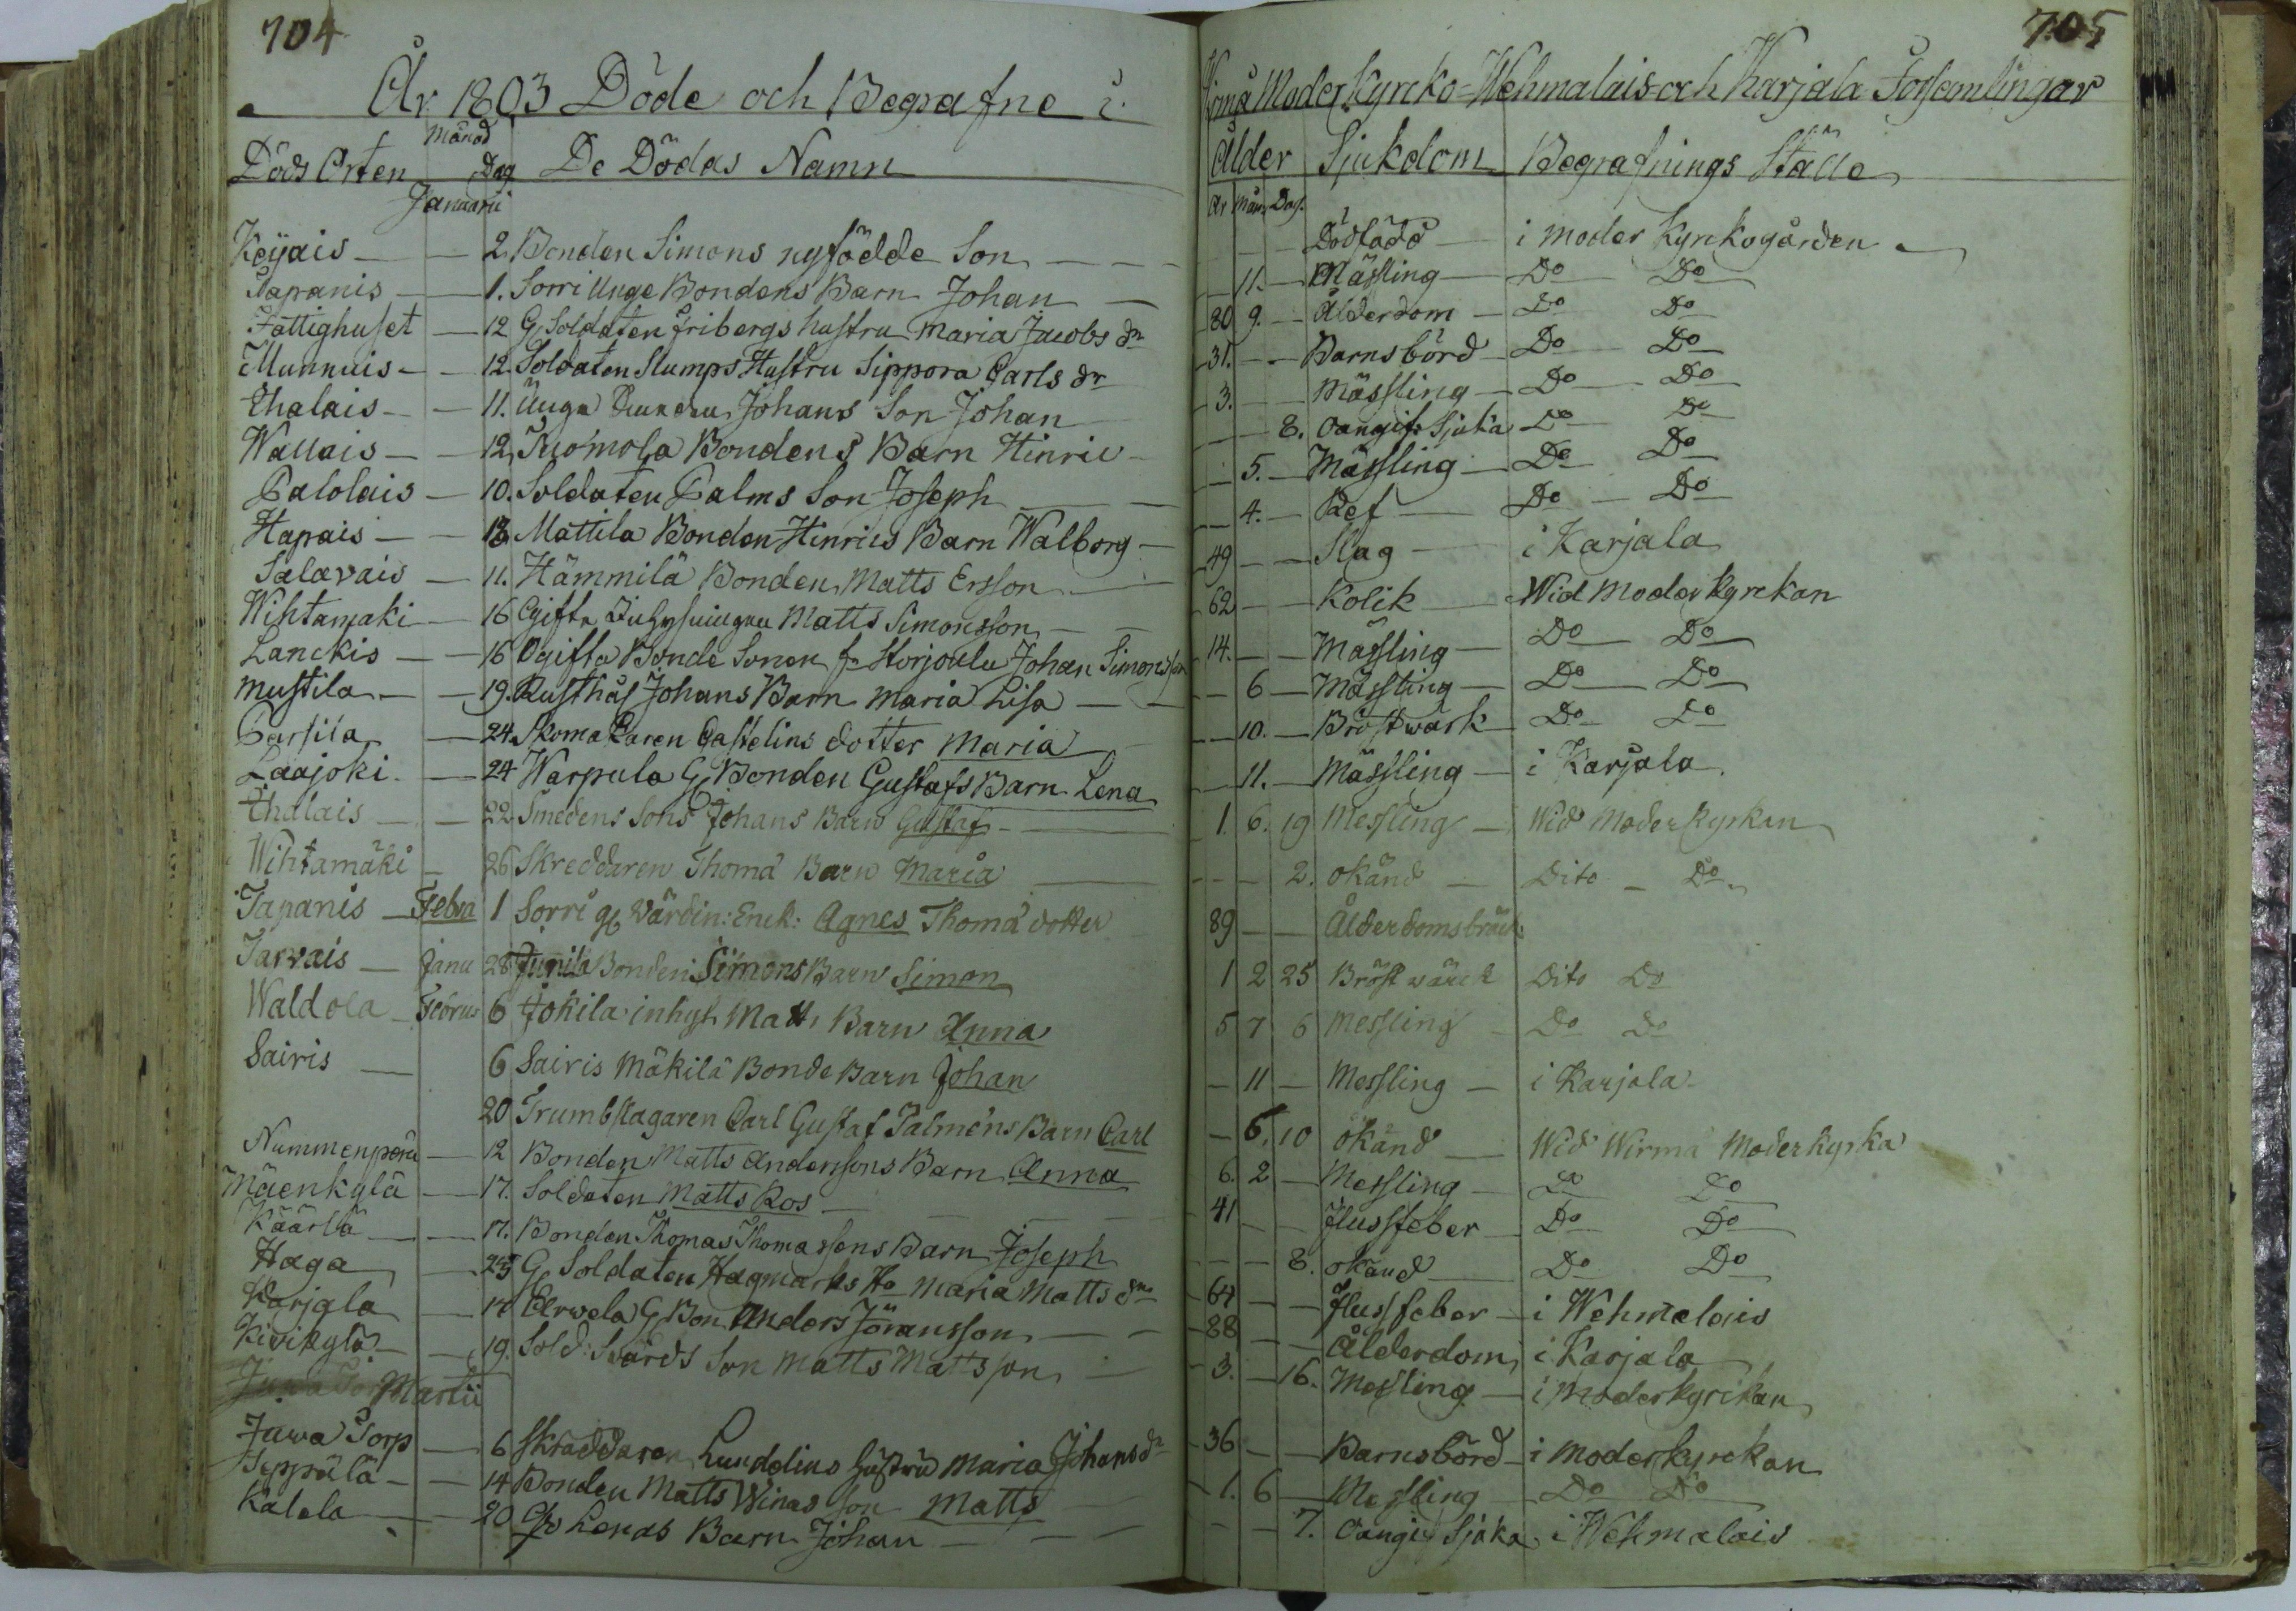 704
År 1803 Döde och Begrafne i
Döds Orten Månad Dag De Dödas Namn
Januarii
Keijais 2 Bonden Simons nyfödde Son
Tapanis 1. Sorri Unge Bondens Barn Johan
Fattighuset 12 G Soldaten Fribergs hustru Maria Jacobs dr
Munnuis 12 Soldaten Slumps Hustru Sippora Carls dr
Ehalais 11. Johans Son Johan
Wallais 12 Tuomola Bondens Barn Hinric
Palolais 10. Soldaten Palms Son Joseph
Hapais 13 Mattila Bonden Hinrics Barn Walborg
Salavais 11. Hämmilä Bonden Matts Ersson
Wihtamaki 16 Ogifta Matts Simonsson
Lanckis 16 Ogifta Bonde Sonen fr Storjoulu Johan Simonsson
Mustila 19. Rusthål Johans Barn Maria Lisa
Parsila 24 Skomakaren Castelins dotter Maria
Laajoki 24 Warpula G Bonden Gustafs Barn Lena
Ehalais 22 Smedens Sons Johans Barn Gustaf
Wihtamäki 26 Skreddaren Thoma Barn Maria
Tapanis Febru 1 Sorri gl Värdin: Enck: Agnes Thoma dotter
Jarvais Janu 28 Junila Bonden Simons Barn Simon
Waldola Febru 6 Jokila inhys Matts Barn Anna
Sairis 6 Sairis Mäkilä Bonde Barn Johan
20 Trumbslagaren Carl Gustaf Palmens Barn Carl
Nummenperä 12 Bonden Matts Anderssons Barn Anna
Mäenkylä 17. Soldaten Matts Ros
Käärlä 17. Bonden Thomas Thomassons Barn Joseph
Haga 23 G Soldaten Hagmarks Ha Maria Matts dr
Karjala 17 Erwela G Bon Anders Jöransson
Kivikylä 19. Sold: Svärds Son Matts Mattsson
Martii
Jawa Torp 6 Skräddaren Lundelins hustru Maria Johans dr
Seppälä 14 Bonden Matts Winas son Matts
Kalela 20 Lenas Barn Johan
705
Wirmå Moder Kyrcko- Wehmalais och Karjala Församlingar
Ålder Sjukdom Begrafnings Ställe
År Mån Dag.
Dödfödd i moder kyrckogården
11. Mässling Do Do
80 9. Ålderdom Do Do
31. Barnsbörd Do Do
3. Mässling Do Do
8. Oangif: Sjuka Do Do
5. Mässling Do Do
4. Ref Do Do
49 Slag i Karjala
62 Kolik Wid Moderkyrckan
14. Mässling Do Do
6 Mässling Do Do
10. Bröstwärk Do Do
11. Mässling i Karjala
1. 6. 19 Messling Wid Moderkyrkan
2. okänd Dito Do
89 Ålderdomsbräck:
1 2 25 Bröstwärck Dito Do
5 7 6 Messling Do Do
11 Messling i Karjala
6. 10 okänd Wid Wirma Moderkyrka
6. 2 Messling Do Do
41 Flussfeber Do Do
8. okänd Do Do
64 Flussfeber i Wehmalais
88 Ålderdom i Karjala
3. 16. Messling i Moderkyrckan
36 Barnsbörd i Moderkyrckan
1. 6 Messling Do Do
7. Oangif Sjuka i Wehmalais